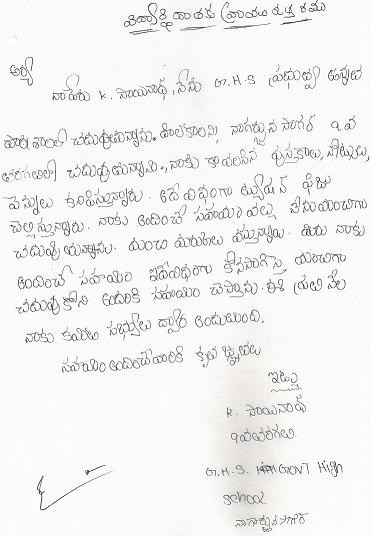 విద్యార్థి దాతకు వ్రాయు ఉత్తరము
ఆర్య
నాపేరు K. సాయినాథ్, నేను G.H.S ప్రభుత్వ ఉన్నత
పాఠశాలలో చదువుతున్నాను. హిల్ కాలని, నాగార్జున సాగర్ 9వ
తరగతిలో చదువుతున్నాను., నాకు కావలసిన పుస్తకాలు, నోట్సులు,
పెన్నులు కొనిస్తున్నారు. అదేవిధంగా ట్యూషన్ ఫీజు
చెల్లిస్తున్నారు. నాకు అందించే సహాయం వల్ల నేను బాగా
చదువుతున్నాను. మంచి మార్కులు వస్తున్నాయి. మీరు నాకు
అందించే సహాయం ఇదేవిధంగా కొనసాగిస్తే బాగా
చదువుకొని అందరికి సహాయం చేస్తాను. ఈ ప్రతి నెల
నాకు కమిటి సభ్యులు ద్వారా అందుతుంది.
సహాయం అందించేవారికి కృతజ్ఞతలు
ఇట్లు
K. సాయినాథ్
9వ తరగతి.
G.H.S. GOVT High
School
నాగార్జునసాగర్